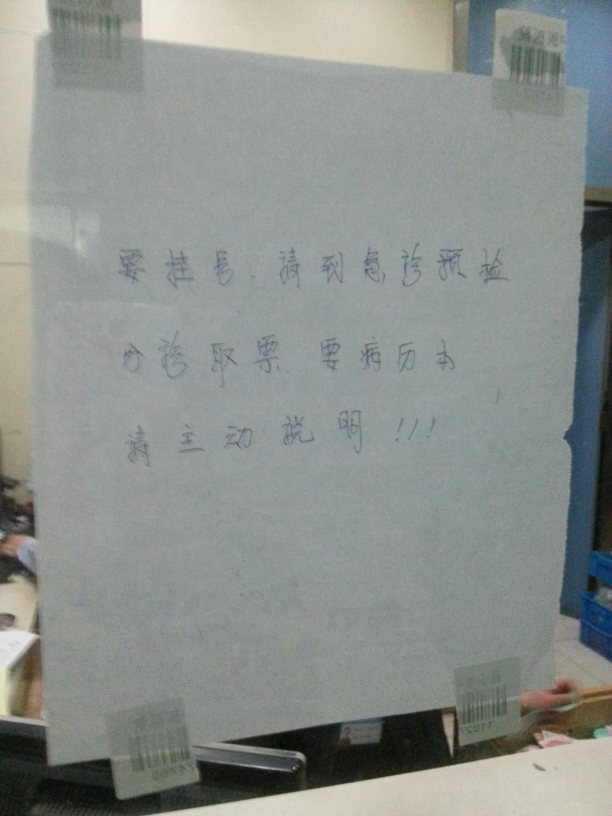 要挂号，请到急诊预检
分诊取票 要病历本
请主动说明!!!